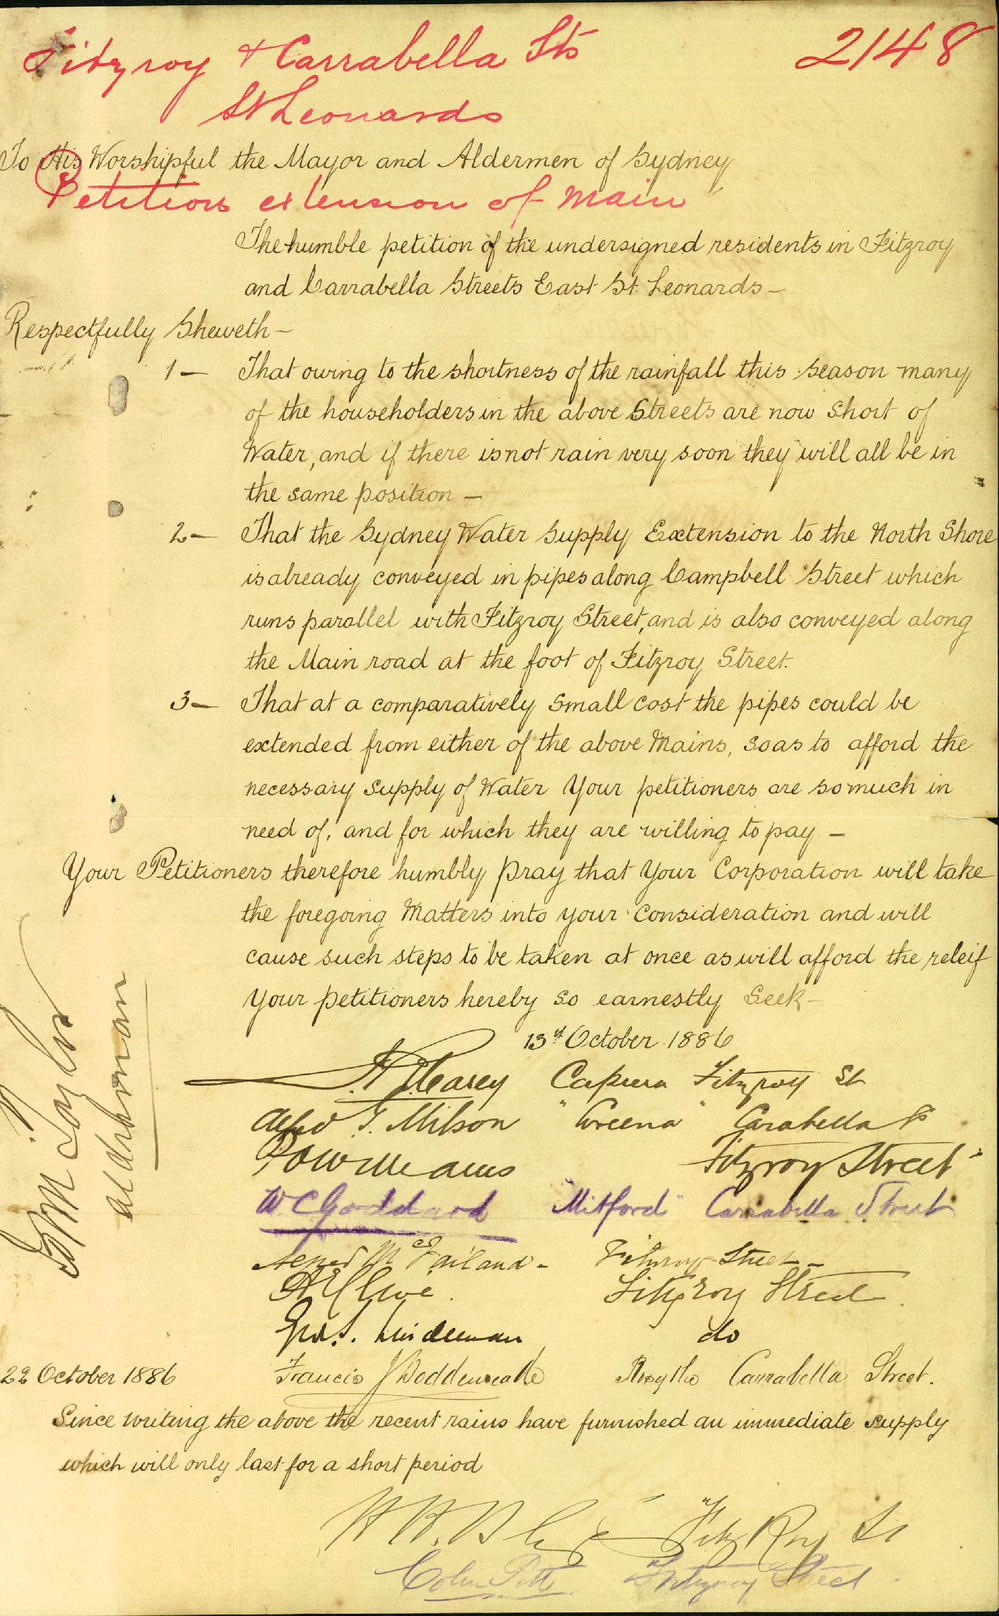 Fitzroy & Carrabella Sts 2148
St Leonards
To His Worshipful the Mayor and Aldermen of Sydney
Petition extension of Main
The humble petition of the undersigned residents in Fitzroy
and Carrabella Streets East St. Leonards —
Respectfully Sheweth —
1 — That owing to the shortness of the rainfall this season many
of the householders in the above Streets are now short of
Water, and if there is not rain very soon they will all be in
the same position —
2 — That the Sydney Water Supply Extension to the North Shore
is already conveyed in pipes along Campbell Street which
runs parallel with Fitzroy Street, and is also conveyed along
the Main road at the foot of Fitzroy Street.
3 — That at a comparatively small cost the pipes could be
extended from either of the above Mains, so as to afford the
necessary supply of Water Your petitioners are so much in
need of, and for which they are willing to pay —
Your Petitioners therefore humbly pray that Your Corporation will take
the foregoing Matters into your consideration and will
cause such steps to be taken at once as will afford the releif
Your petitioners hereby so earnestly seek —
13th October 1886
Carey Fitzroy St
Alfred G. Milson Carabella St
Williams Fitzroy Street
W C Goddard "Mitford" Carrabella Street
Fairland — Fitzroy Street —
Fitzroy Street
Geo. Lindeman do
22 October 1886 Francis J Carrabella Street.
Since writing the above the recent rains have furnished an immediate supply
which will only last for a short period
FitzRoy St
Colin Pitt Fitzroy Street
Taylor
Alderman